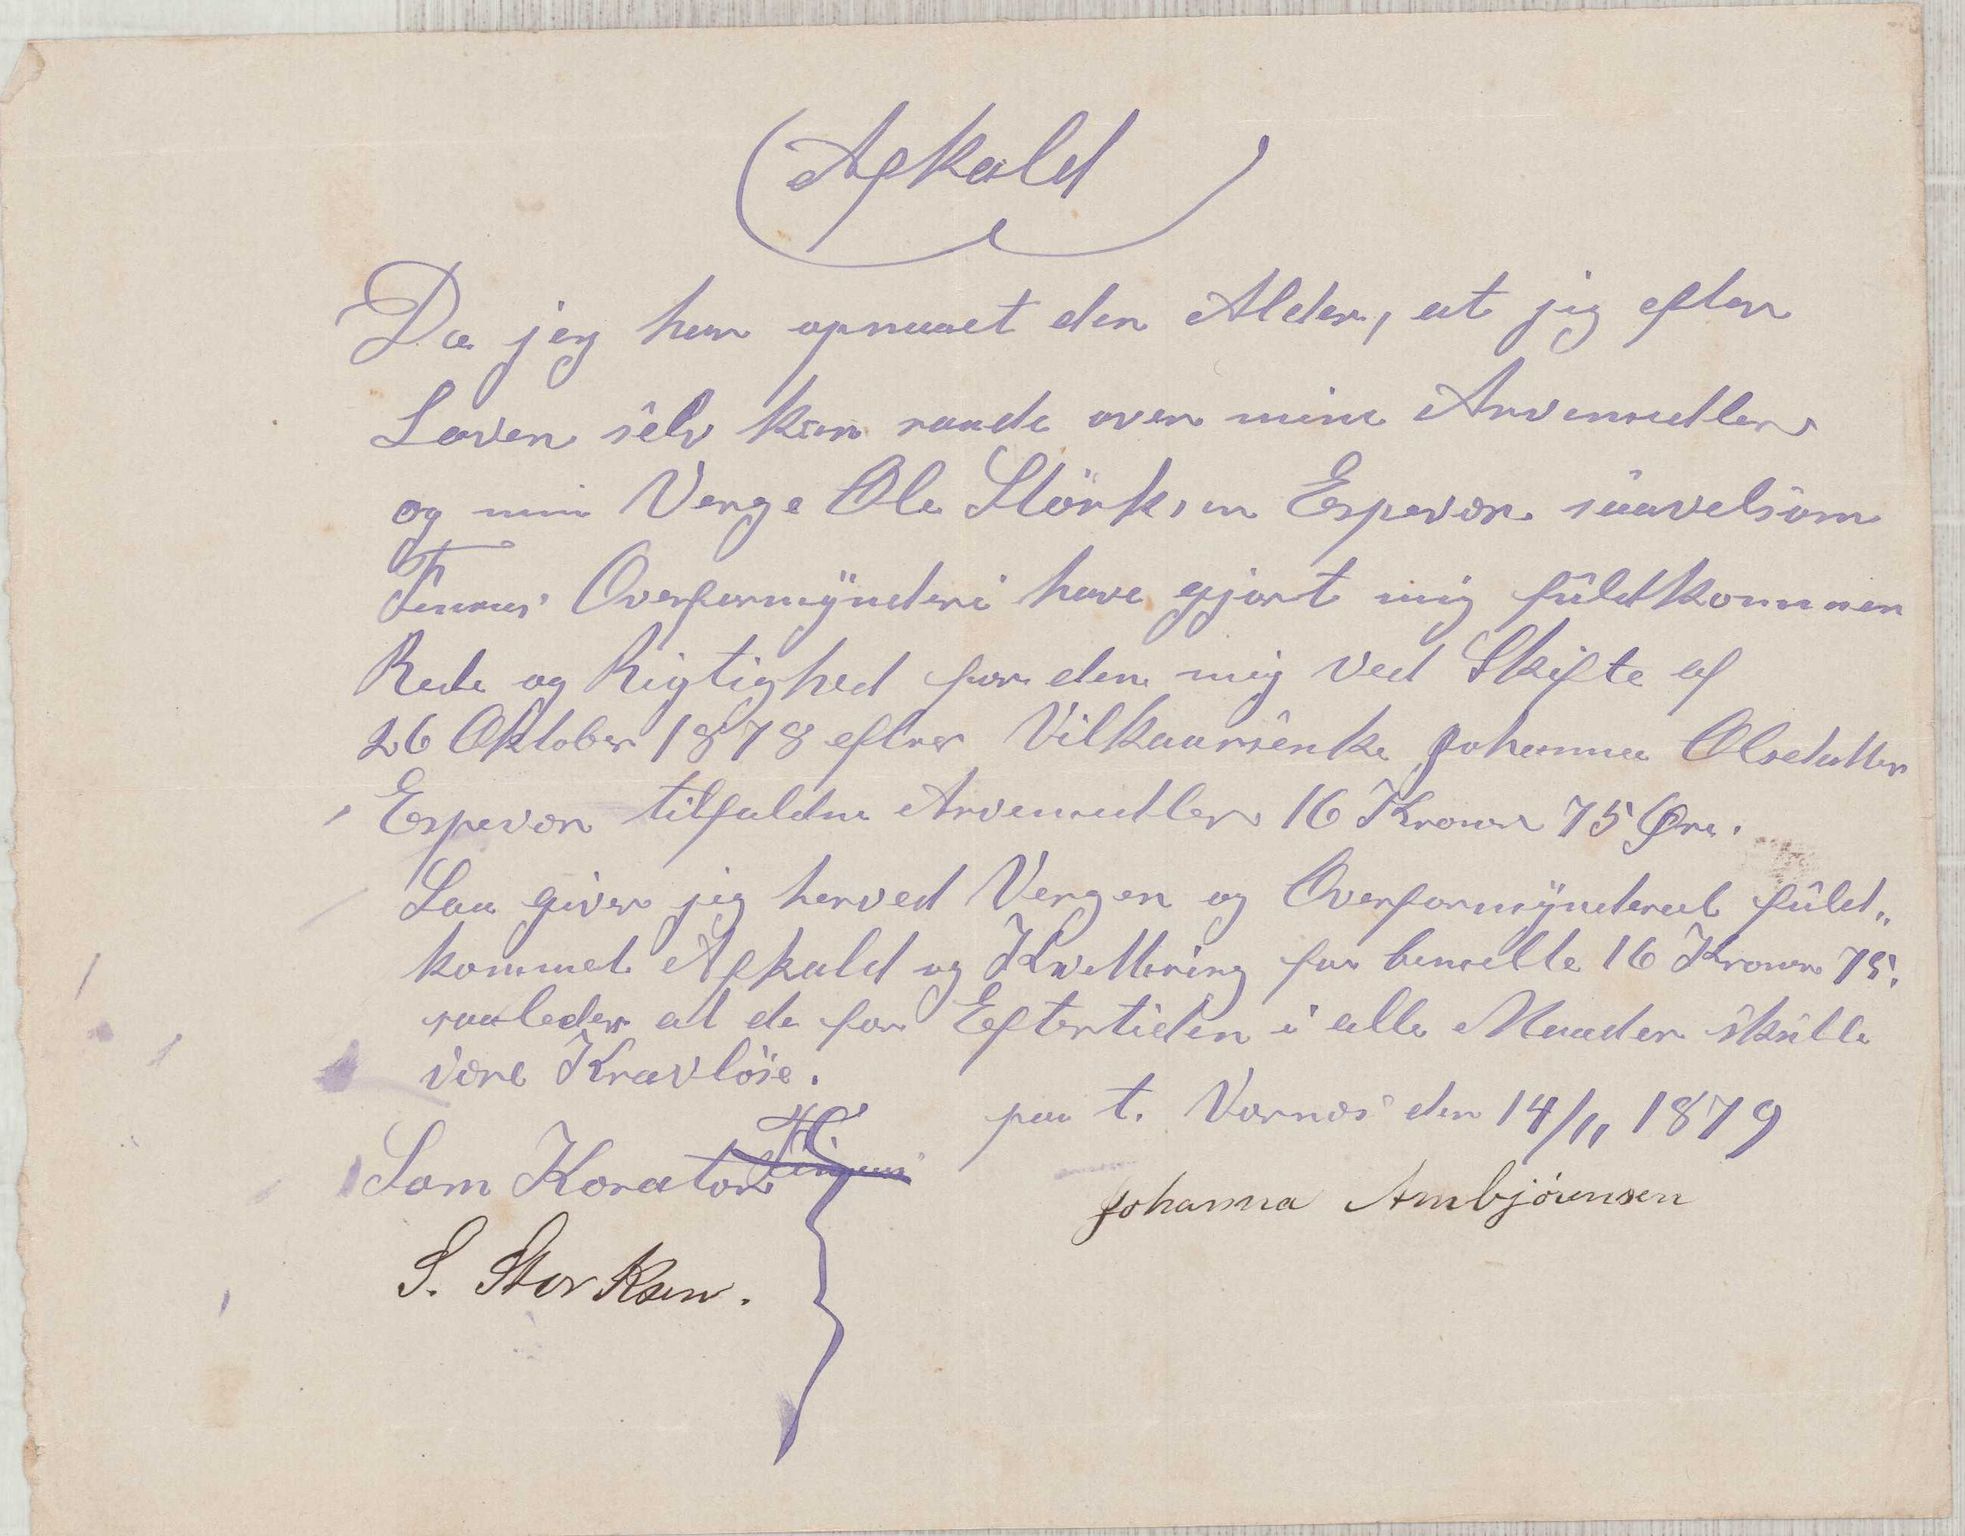 Afkald
Da jeg har opnaaet den Alder, at jeg efter
Loven selv kan raade over mine Arvemidler
og min Verge Ole Störksen Espevær saavelsom
Finnaas Overformynderi have gjort mig fuldkommen
Rede og Rigtighed for den mig ved Skifte af
26 Oktober 1878 efter Vilkaarsenke Johanna Olsdatter
Espevær tilfaldne Arvemidler 16 Kroner 75 Øre.
Saa giver jeg herved Vergen og Overformynderiet fuld„
kommet Afkald og Kvittering for bemeldte 16 Kroner 75.
saaledes at de for Eftertiden i alle Maader skulle
være Kravlöse.
paa t. Vornes den 14/11 1879
Som Korator
Johanna Ambjörnsen
S. Storksen.